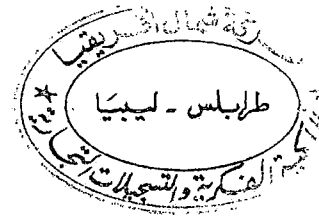 شركة شمال افريقيا
طرابلس - ليبيا
الفكرية والتسجيلات التجارية